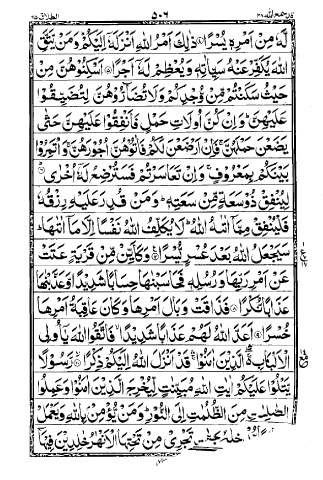 قد سمع الله ٢٨ ٥٠٦ الطلاق ٦٥
لَهٗ مِنْ اَمْرِهٖ يُسْرًا ۝ ذٰلِكَ اَمْرُ اللّٰهِ اَنْزَلَهٗۤ اِلَيْكُمْ وَمَنْ يَّتَّقِ
اللّٰهَ يُكَفِّرْ عَنْهُ سَيِّاٰتِهٖ وَيُعْظِمْ لَهٗۤ اَجْرًا ۝ اَسْكِنُوْهُنَّ مِنْ
حَيْثُ سَكَنْتُمْ مِّنْ وُّجْدِكُمْ وَلَا تُضَآرُّوْهُنَّ لِتُضَيِّقُوْا
عَلَيْهِنَّ وَاِنْ كُنَّ اُولَاتِ حَمْلٍ فَاَنْفِقُوْا عَلَيْهِنَّ حَتّٰى
يَضَعْنَ حَمْلَهُنَّ فَاِنْ اَرْضَعْنَ لَكُمْ فَاٰتُوْهُنَّ اُجُوْرَهُنَّ وَاْتَمِرُوْا
بَيْنَكُمْ بِمَعْرُوْفٍ وَاِنْ تَعَاسَرْتُمْ فَسَتُرْضِعُ لَهٗۤ اُخْرٰى ۝
لِيُنْفِقْ ذُوْ سَعَةٍ مِّنْ سَعَتِهٖ وَمَنْ قُدِرَ عَلَيْهِ رِزْقُهٗ
فَلْيُنْفِقْ مِمَّاۤ اٰتٰىهُ اللّٰهُ لَا يُكَلِّفُ اللّٰهُ نَفْسًا اِلَّا مَاۤ اٰتٰىهَا
سَيَجْعَلُ اللّٰهُ بَعْدَ عُسْرٍ يُّسْرًا ۝ وَكَاَيِّنْ مِّنْ قَرْيَةٍ عَتَتْ
عَنْ اَمْرِ رَبِّهَا وَرُسُلِهٖ فَحَاسَبْنٰهَا حِسَابًا شَدِيْدًا وَّعَذَّبْنٰهَا
عَذَابًا نُّكْرًا ۝ فَذَاقَتْ وَبَالَ اَمْرِهَا وَكَانَ عَاقِبَةُ اَمْرِهَا
خُسْرًا ۝ اَعَدَّ اللّٰهُ لَهُمْ عَذَابًا شَدِيْدًا فَاتَّقُوا اللّٰهَ يٰۤاُولِى
الْاَلْبَابِ الَّذِيْنَ اٰمَنُوْا قَدْ اَنْزَلَ اللّٰهُ اِلَيْكُمْ ذِكْرًا ۝ رَّسُوْلًا
يَّتْلُوْا عَلَيْكُمْ اٰيٰتِ اللّٰهِ مُبَيِّنٰتٍ لِّيُخْرِجَ الَّذِيْنَ اٰمَنُوْا وَعَمِلُوا
الصّٰلِحٰتِ مِنَ الظُّلُمٰتِ اِلَى النُّوْرِ وَمَنْ يُّؤْمِنْ بِاللّٰهِ وَيَعْمَلْ
تَجْرِىْ مِنْ تَحْتِهَا الْاَنْهٰرُ خٰلِدِيْنَ فِيْهَاۤ